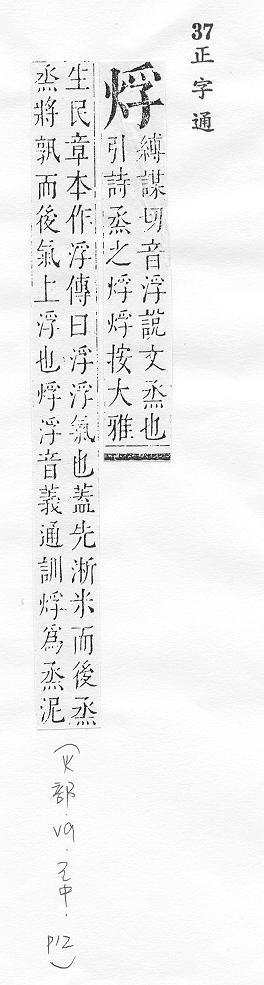 37正字通
烰
縛謀切音浮說文烝也
引詩烝之烰烰按大雅
生民章本作浮傳曰浮浮氣也蓋先淅米而後烝
烝將孰而後氣上浮也烰浮音義通訓烰為烝泥
(火部.V9.巳中.P12)